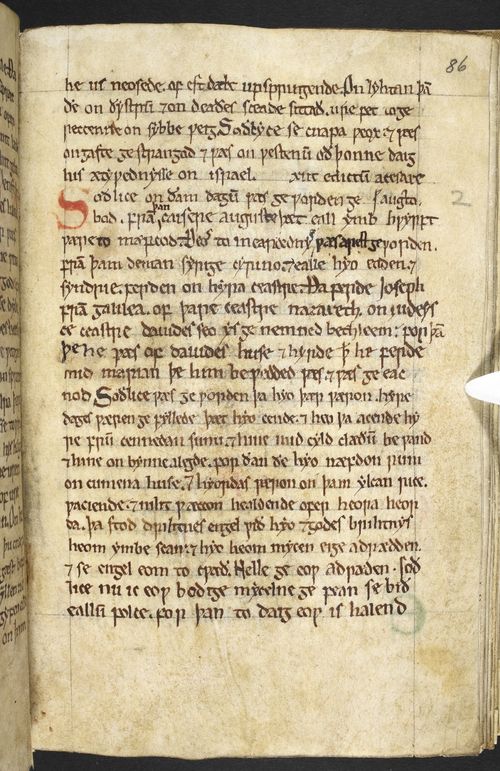 86
he us neosede. of eft dæle upspringende. On lyhtan þā
ðe on ðystrū ⁊ on deaðes sceade sitteð. ure fet to ge
reccenne on sybbe weig. Soðlyce se cnapa weox. ⁊ wæs
on gaste gestrangod ⁊ wæs on westenū oð þonne daig
his ætywednysse on israel. exiit edictū a cesare
Soðlice on ðam dagū wæs geworden ge augusto
bod. frā þan caisere auguste þæt eall ymb hwyrft
2
wære to mearcod. wæs ærest geworden.
frā þam deman syrige cyrino. ⁊ ealle hyo eoden. ⁊
syndrie. ferden on hyra ceastre. Ða ferde Ioseph
frā galilea. of þare ceastre nazareth. on iudeys
ce ceastre dauides seo ys ge nemned bethleem. for þā
þe he wæs of dauides huse ⁊ hyride þ he ferde
mid marian þe him be wedded wæs. ⁊ wæs ge eac
nod. Soðlice wæs ge worden þa hyo þær wæron. hyre
dages wæren ge fyllede þæt hyo cende. ⁊ heo þa acende hy
re frū cennedan sunu. ⁊ hine mid cyld claðū be wand
⁊ hine on bynne aleigde. for ðan ðe hyo næfdon rum
on cumena huse. ⁊ hyordas wæron on þam ylcan rice.
waciende. ⁊ niht wæccan healdende ofer heora heor
da. Þa stod drihtnes engel wið hyo ⁊ godes brihtnys
heom ymbe scean. ⁊ hyo heom mycen eige adrædden.
⁊ se engel eom to cwæð. Nelle ge eow adræden. Soð
lice nu ic eow bodige mycelne ge fean se bið
eallū folce. for þan to daig eow is halend